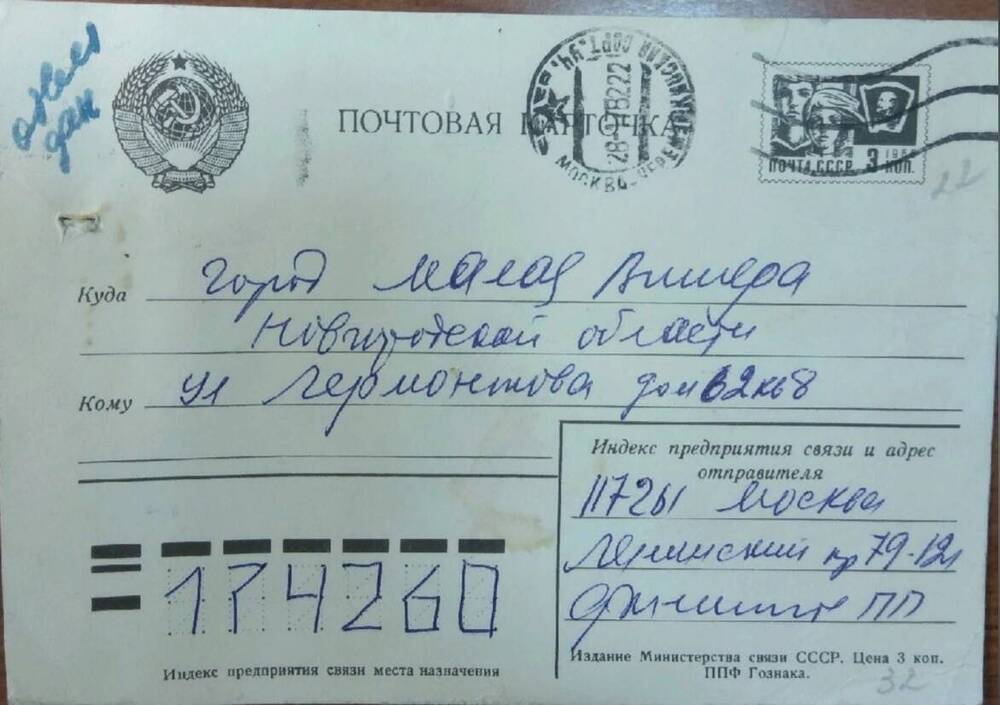 ПОЧТОВАЯ КАРТОЧКА
МОСКВА
28-9 78 22
ПОЧТА СССР 3 КОП.
22
Куда город Малая Вишера
Новгородской области
Кому ул Лермонтова дом 62 кв 8
Индекс предприятия связи и адрес
отправителя
117261 Москва
Ленинский пр 79-121
ПП
174260
Индекс предприятия связи места назначения
Издание Министерства связи СССР. Цена 3 коп.
ППФ Гознака.
32